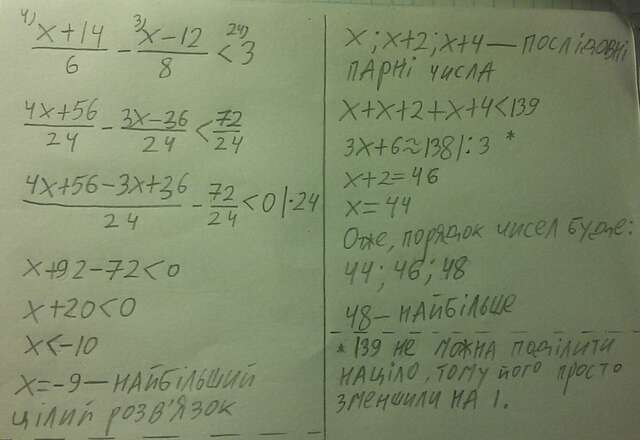 4) x+14/6 - 3) x-12/8 < 24) 3
4x+56/24 - 3x-36/24 < 72/24
4x+56-3x+36/24 - 72/24 < 0 |·24
x+92-72<0
x+20<0
x<-10
x=-9 — НАЙБІЛЬШИЙ
ЦІЛИЙ РОЗВ'ЯЗОК
x; x+2; x+4 — ПОСЛІДОВНІ
ПАРНІ ЧИСЛА
x+x+2+x+4<139
3x+6≈138/:3 *
x+2=46
x=44
Отже, порядок чисел буде:
44; 46; 48
48 — НАЙБІЛЬШЕ
* 139 НЕ МОЖНА ПОДІЛИТИ
НАЦІЛО, ТОМУ ЙОГО ПРОСТО
ЗМЕНШИЛИ НА 1.